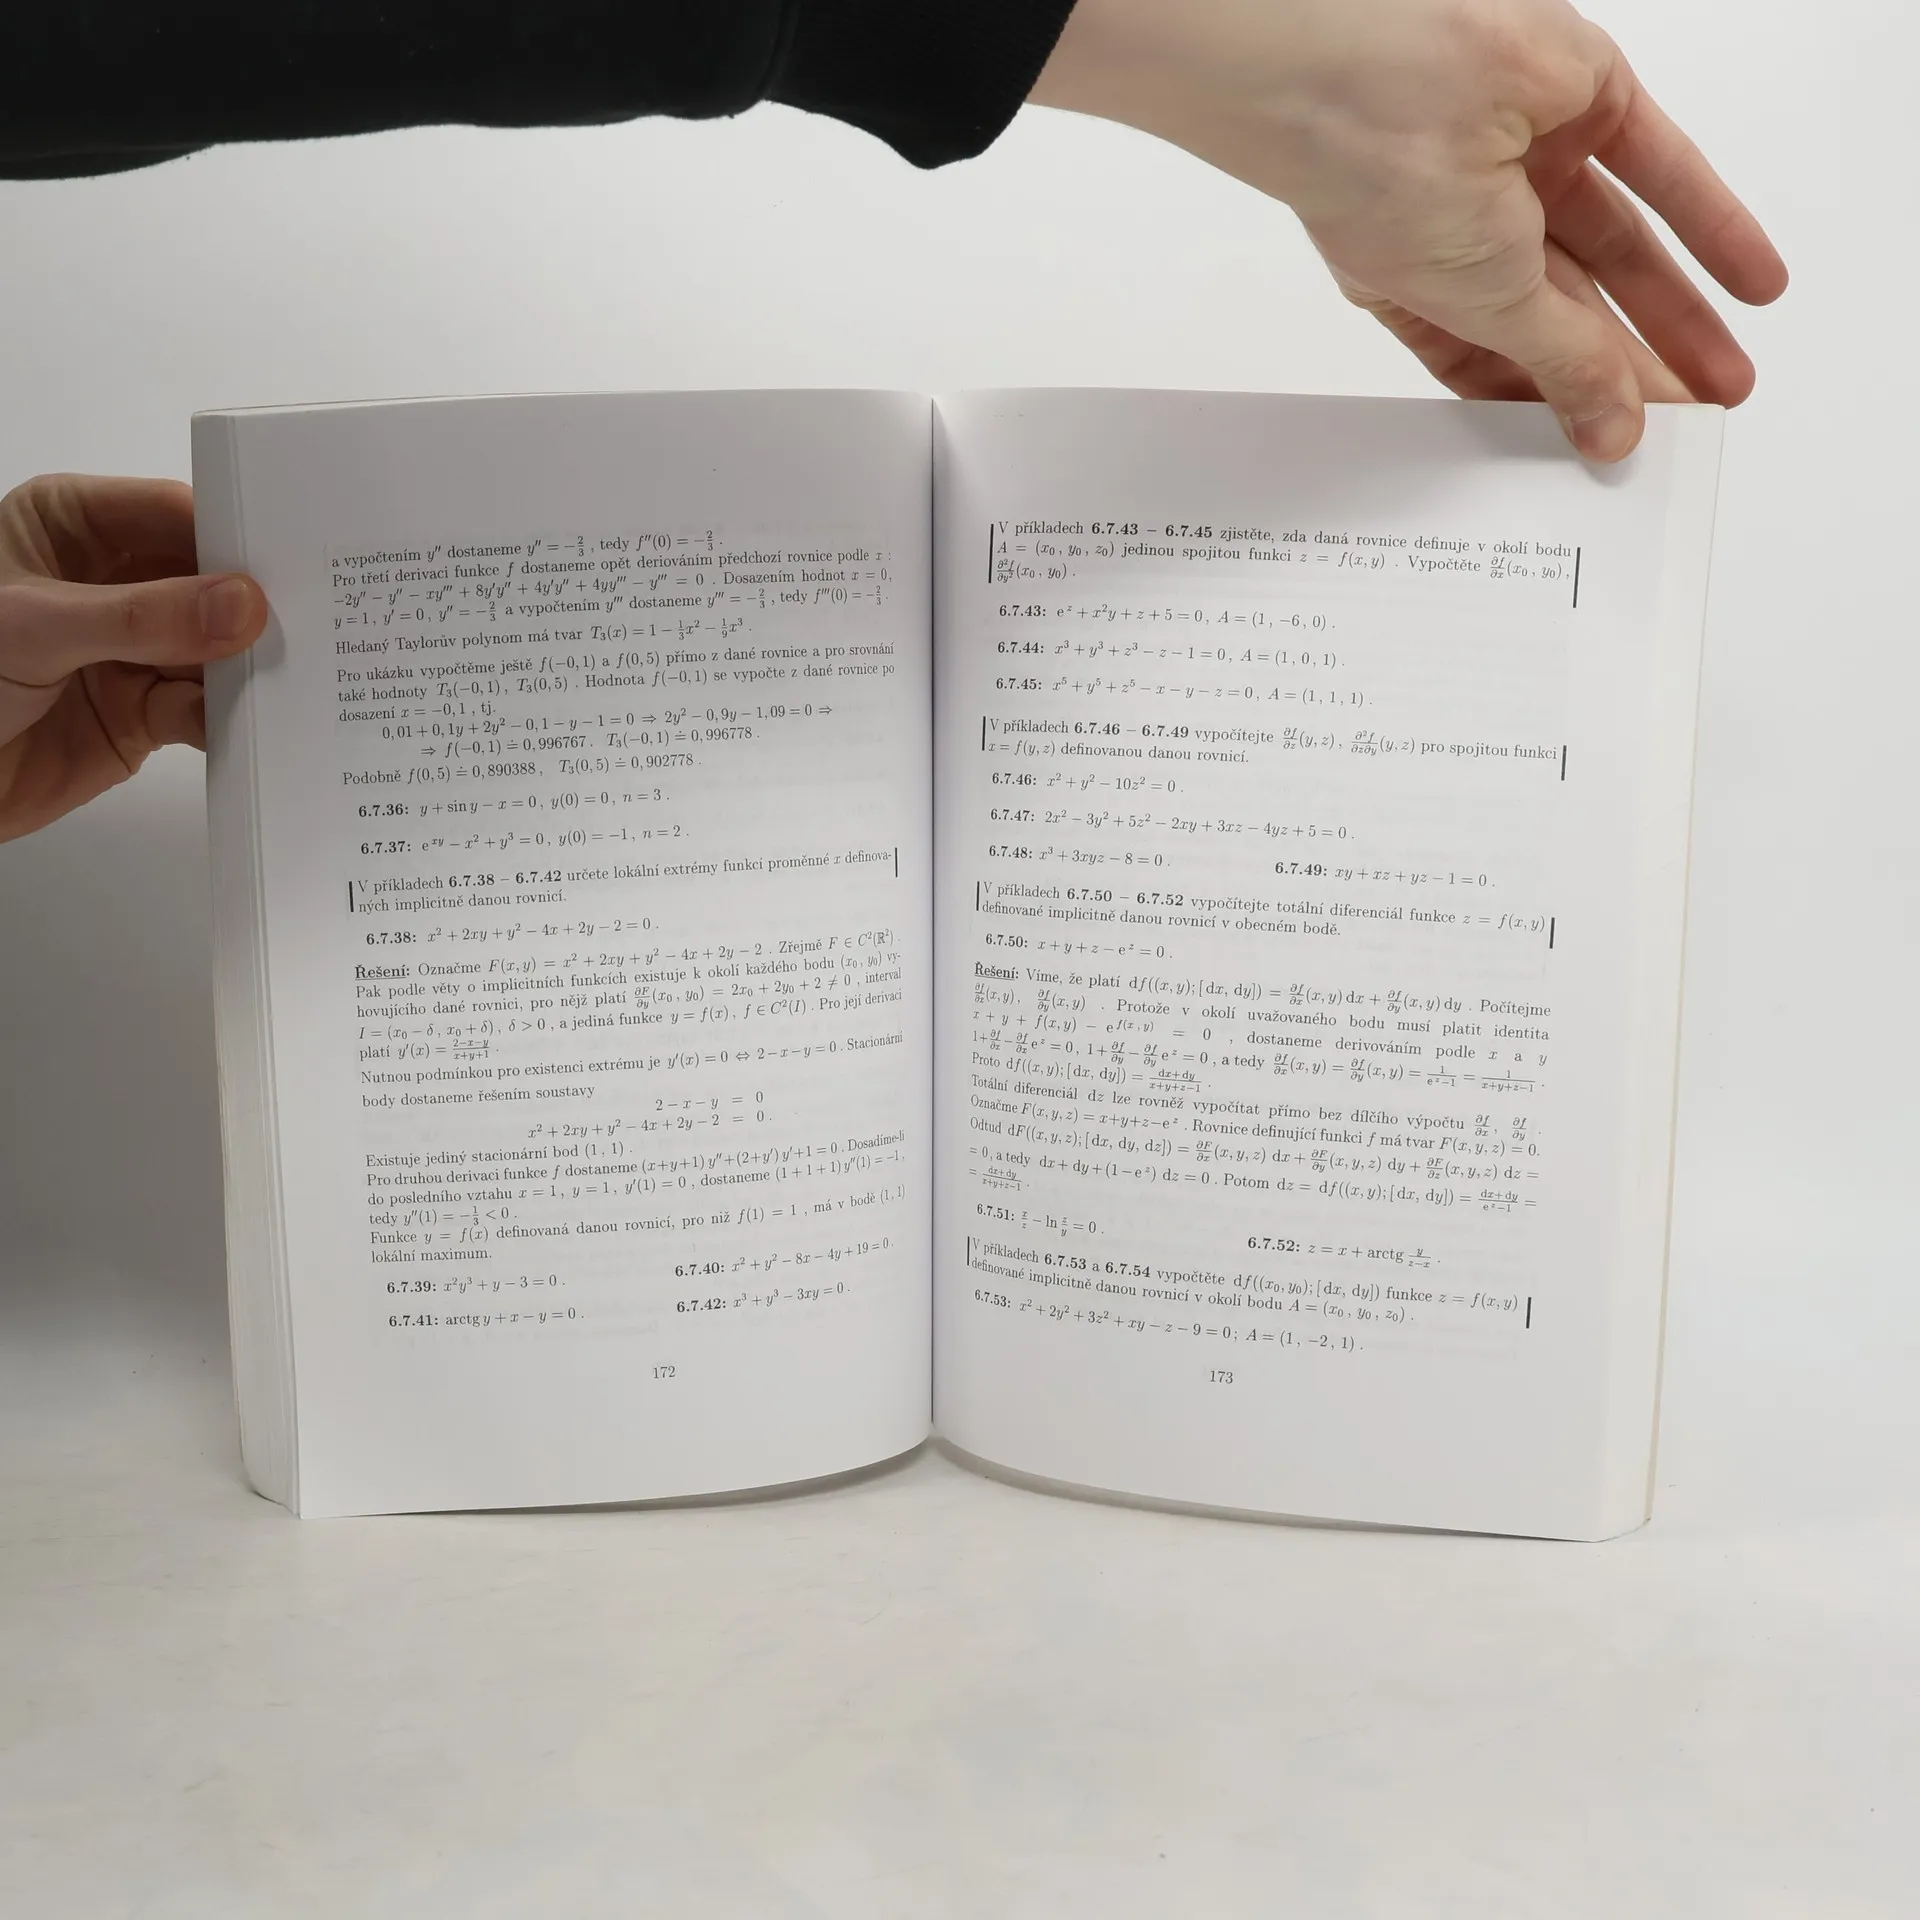 a vypočtením y″ dostaneme y″ = −2/3 , tedy f″(0) = −2/3 .
Pro třetí derivaci funkce f dostaneme opět deriováním předchozí rovnice podle x :
−2y″ − y″ − xy‴ + 8y′y″ + 4y′y″ + 4yy‴ − y‴ = 0 . Dosazením hodnot x = 0,
y = 1, y′ = 0, y″ = −2/3 a vypočtením y‴ dostaneme y‴ = −2/3 , tedy f‴(0) = −2/3 .
Hledaný Taylorův polynom má tvar T₃(x) = 1 − 1/3x² − 1/9x³ .
Pro ukázku vypočtěme ještě f(−0,1) a f(0,5) přímo z dané rovnice a pro srovnání
také hodnoty T₃(−0,1) , T₃(0,5) . Hodnota f(−0,1) se vypočte z dané rovnice po
dosazení x = −0,1 , tj.
0,01 + 0,1y + 2y² − 0,1 − y − 1 = 0 ⇒ 2y² − 0,9y − 1,09 = 0 ⇒
⇒ f(−0,1) ≐ 0,996767. T₃(−0,1) ≐ 0,996778 .
Podobně f(0,5) ≐ 0,890388 , T₃(0,5) ≐ 0,902778 .
6.7.36: y + sin y − x = 0 , y(0) = 0 , n = 3 .
6.7.37: e^{xy} − x² + y³ = 0 , y(0) = −1 , n = 2 .
V příkladech 6.7.38 − 6.7.42 určete lokální extrémy funkcí proměnné x definova-
ných implicitně danou rovnicí.
6.7.38: x² + 2xy + y² − 4x + 2y − 2 = 0 .
Řešení: Označme F(x,y) = x² + 2xy + y² − 4x + 2y − 2 . Zřejmě F ∈ C²(ℝ²) .
Pak podle věty o implicitních funkcích existuje k okolí každého bodu (x₀ , y₀) vy-
hovujícího dané rovnici, pro nějž platí ∂F/∂y(x₀ , y₀) = 2x₀ + 2y₀ + 2 ≠ 0 , interval
I = (x₀ − δ , x₀ + δ) , δ > 0 , a jediná funkce y = f(x) , f ∈ C²(I) . Pro její derivaci
platí y′(x) = (2−x−y)/(x+y+1) .
Nutnou podmínkou pro existenci extrému je y′(x) = 0 ⇔ 2 − x − y = 0 . Stacionární
body dostaneme řešením soustavy
2 − x − y = 0
x² + 2xy + y² − 4x + 2y − 2 = 0 .
Existuje jediný stacionární bod (1 , 1) .
Pro druhou derivaci funkce f dostaneme (x+y+1) y″+(2+y′) y′+1 = 0 . Dosadíme-li
do posledního vztahu x = 1 , y = 1 , y′(1) = 0 , dostaneme (1 + 1 + 1) y″(1) = −1 ,
tedy y″(1) = −1/3 < 0 .
Funkce y = f(x) definovaná danou rovnicí, pro niž f(1) = 1 , má v bodě (1 , 1)
lokální maximum.
6.7.39: x²y³ + y − 3 = 0 . 6.7.40: x² + y² − 8x − 4y + 19 = 0 .
6.7.41: arctg y + x − y = 0 . 6.7.42: x³ + y³ − 3xy = 0 .
172
V příkladech 6.7.43 − 6.7.45 zjistěte, zda daná rovnice definuje v okolí bodu
A = (x₀ , y₀ , z₀) jedinou spojitou funkci z = f(x,y) . Vypočtěte ∂f/∂x(x₀ , y₀) ,
∂²f/∂y²(x₀ , y₀) .
6.7.43: e^z + x²y + z + 5 = 0 , A = (1 , −6 , 0) .
6.7.44: x³ + y³ + z³ − z − 1 = 0 , A = (1 , 0 , 1) .
6.7.45: x⁵ + y⁵ + z⁵ − x − y − z = 0 , A = (1 , 1 , 1) .
V příkladech 6.7.46 − 6.7.49 vypočítejte ∂f/∂z(y,z) , ∂²f/∂z∂y(y,z) pro spojitou funkci
x = f(y,z) definovanou danou rovnicí.
6.7.46: x² + y² − 10z² = 0 .
6.7.47: 2x² − 3y² + 5z² − 2xy + 3xz − 4yz + 5 = 0 .
6.7.48: x³ + 3xyz − 8 = 0 . 6.7.49: xy + xz + yz − 1 = 0 .
V příkladech 6.7.50 − 6.7.52 vypočítejte totální diferenciál funkce z = f(x,y)
definované implicitně danou rovnicí v obecném bodě.
6.7.50: x + y + z − e^z = 0 .
Řešení: Víme, že platí df((x,y);[dx, dy]) = ∂f/∂x(x,y) dx + ∂f/∂y(x,y) dy . Počítejme
∂f/∂x(x,y), ∂f/∂y(x,y) . Protože v okolí uvažovaného bodu musí platit identita
x + y + f(x,y) − e^{f(x,y)} = 0 , dostaneme derivováním podle x a y
1+∂f/∂x−∂f/∂x e^z = 0 , 1+∂f/∂y−∂f/∂y e^z = 0 , a tedy ∂f/∂x(x,y) = ∂f/∂y(x,y) = 1/(e^z−1) = 1/(x+y+z−1) .
Proto df((x,y);[dx, dy]) = (dx+dy)/(x+y+z−1) .
Totální diferenciál dz lze rovněž vypočítat přímo bez dílčího výpočtu ∂f/∂x , ∂f/∂y .
Označme F(x,y,z) = x+y+z−e^z . Rovnice definující funkci f má tvar F(x,y,z) = 0.
Odtud dF((x,y,z);[dx, dy, dz]) = ∂F/∂x(x,y,z) dx + ∂F/∂y(x,y,z) dy + ∂F/∂z(x,y,z) dz =
= 0, a tedy dx + dy + (1 − e^z) dz = 0 . Potom dz = df((x,y);[dx, dy]) = (dx+dy)/(e^z−1) =
= (dx+dy)/(x+y+z−1) .
6.7.51: x/z − ln z/y = 0 . 6.7.52: z = x + arctg y/(z−x) .
V příkladech 6.7.53 a 6.7.54 vypočtěte df((x₀,y₀);[dx, dy]) funkce z = f(x,y)
definované implicitně danou rovnicí v okolí bodu A = (x₀ , y₀ , z₀) .
6.7.53: x² + 2y² + 3z² + xy − z − 9 = 0; A = (1 , −2 , 1) .
173